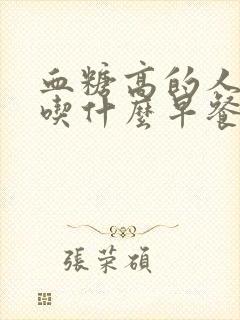 血糖高的人
喫什麼早餐
張荣碩